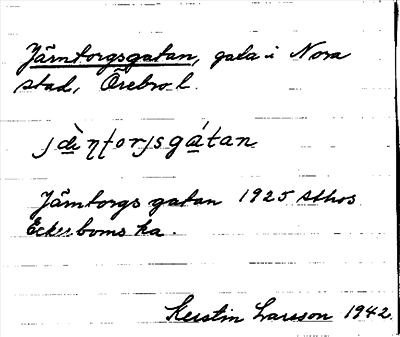 Järntorgsgatan, gata i Nora
stad, Örebro l.
jä̀ṇṭorjsgátan
Järntorgs gatan 1925 sthos
Eckerboms ka.
Kerstin Larsson 1942.